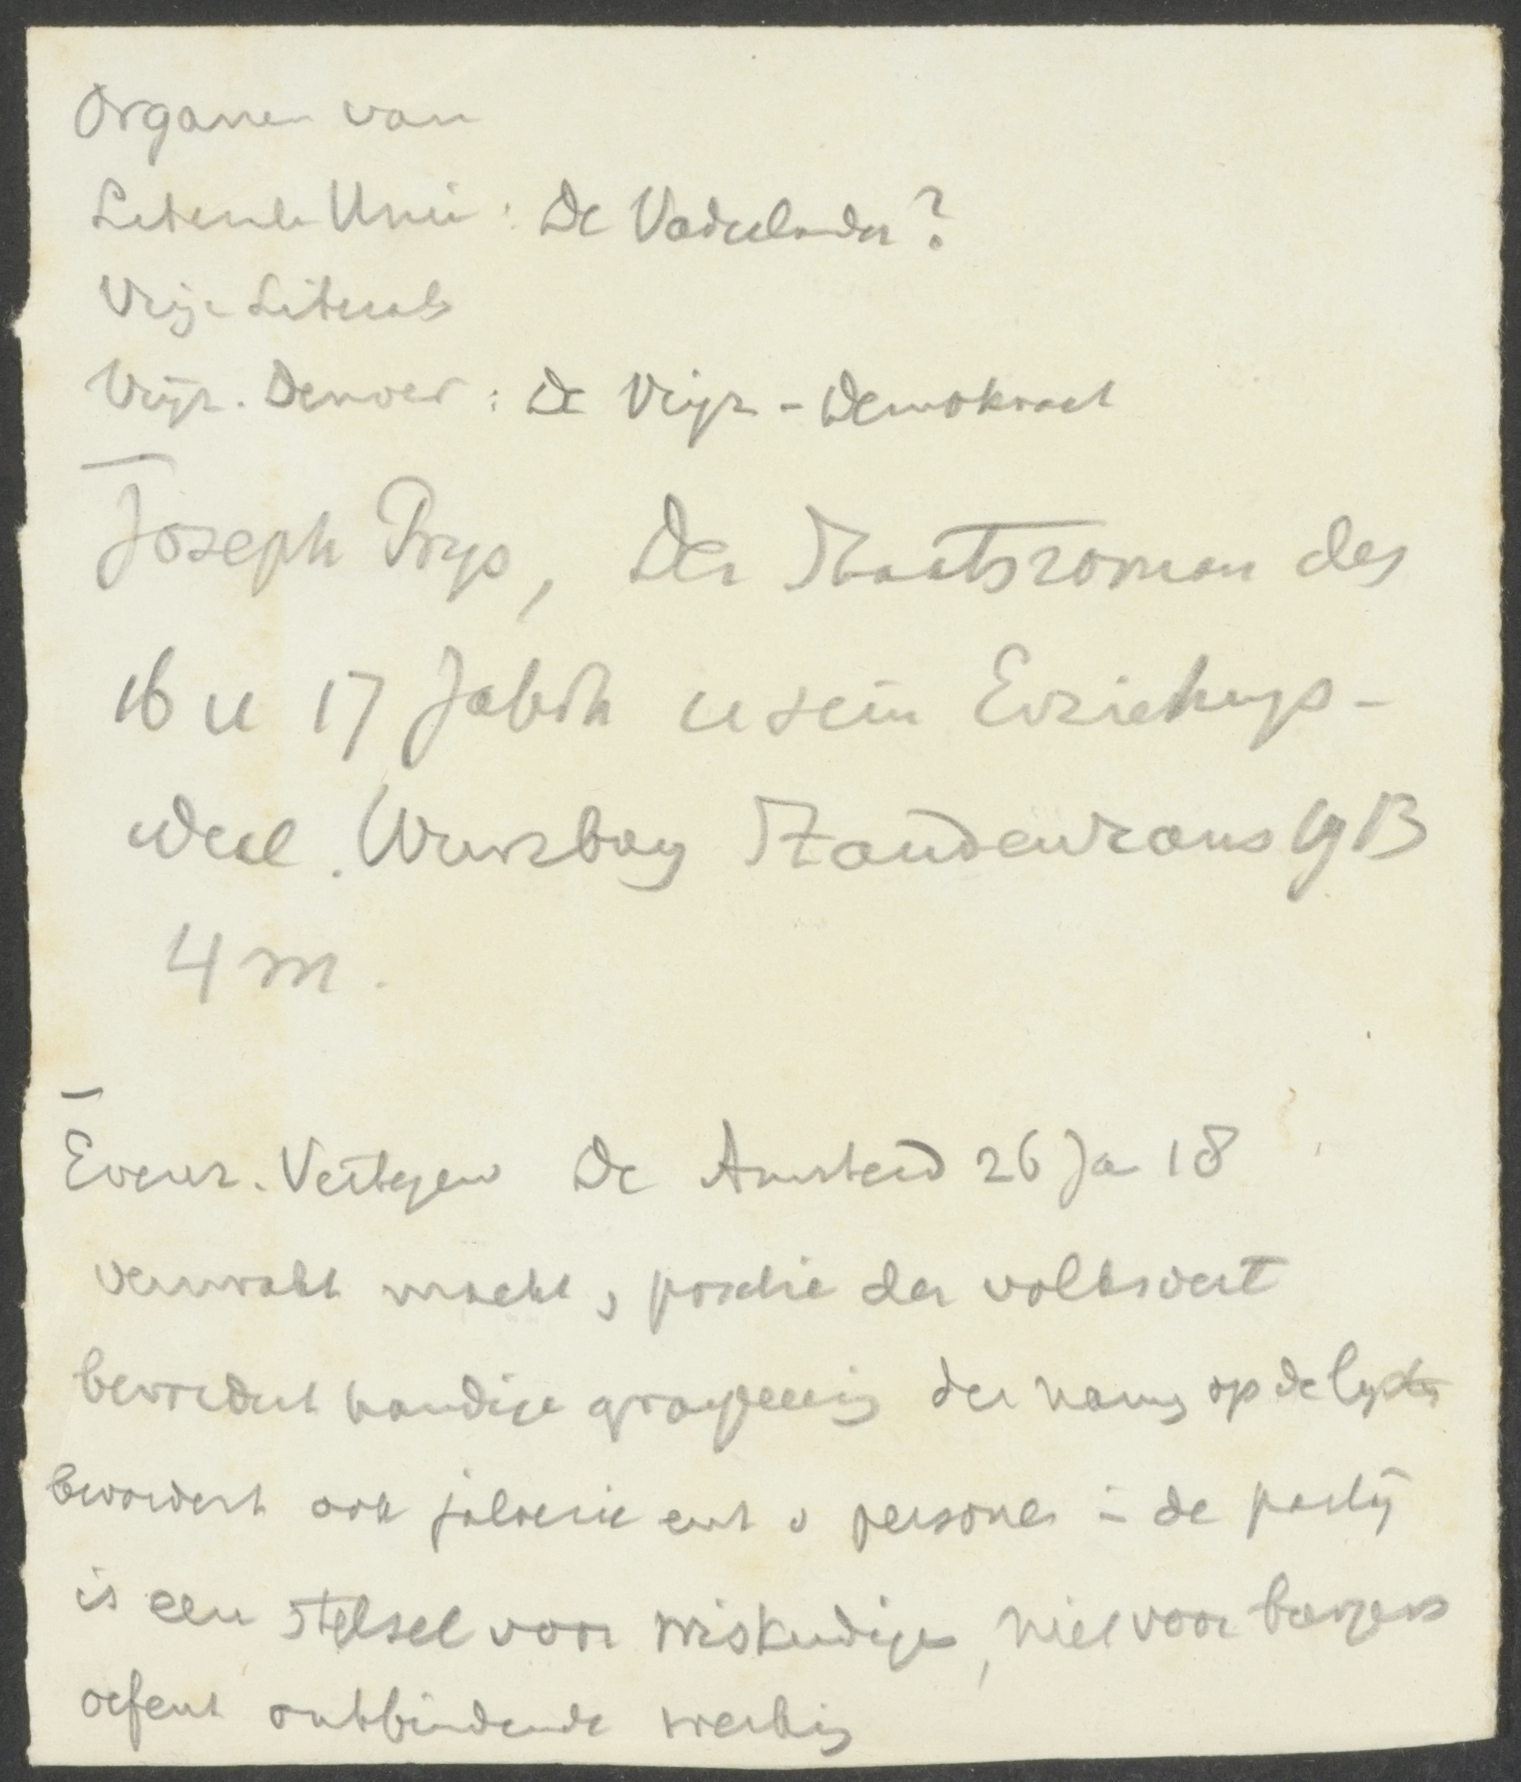 Organen van
Liberale Unie: De Vaderlander?
Vrije Liberals
Vrijz. Democr: De Vrijz-Demokraat
Joseph Prys, Der Staatsroman des
16 u 17 Jahrh u sein Erziehungs-
ideal. Wurzburg Staudenraus 1913
4 m.
Evenr. Vertegenw De Amsterd 26 Ja 18
verzwakt macht, positie der volksvert
bevordert handige groepeering der namen op de lijsten
bevordert ook jaloezie enz v personen in de partij
is een stelsel voor wiskundigen, niet voor burgers
oefent ontbindende werking